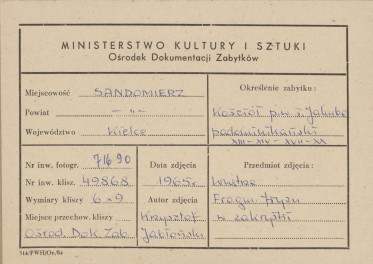 MINISTERSTWO KULTURY I SZTUKI
Ośrodek Dokumentacji Zabytków
Miejscowość SANDOMIERZ
Powiat —„—
Województwo Kielce
Określenie zabytku:
Kościół p.w. ś. Jakuba
podominikański
XIII-XIV-XVII-XX
Nr inw. fotogr. 71690
Nr inw. klisz. 49868
Wymiary kliszy 6x9
Miejsce przechow. kliszy
Ośrod. Dok. Zab.
Data zdjęcia
1965r.
Autor zdjęcia
Krzysztof
Jabłoński
Przedmiot zdjęcia:
wnętrze
Fragm. fryzu
w zakrystii